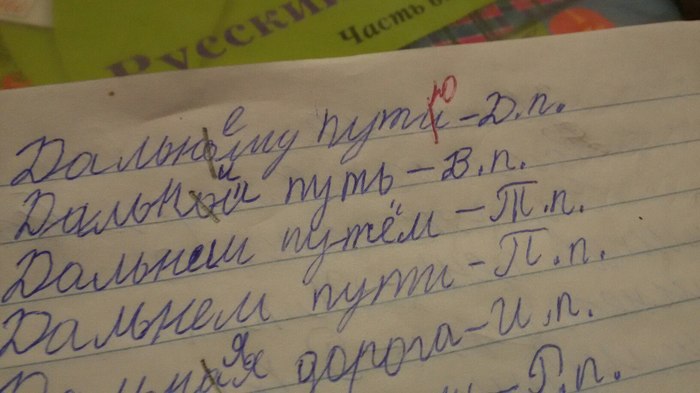 Русский
Часть
Дальнему путю – Д.п.
Дальний путь – В.п.
Дальнем путём – Т.п.
Дальнем пути – П.п.
Дальняя дорога – И.п.
– Р.п.